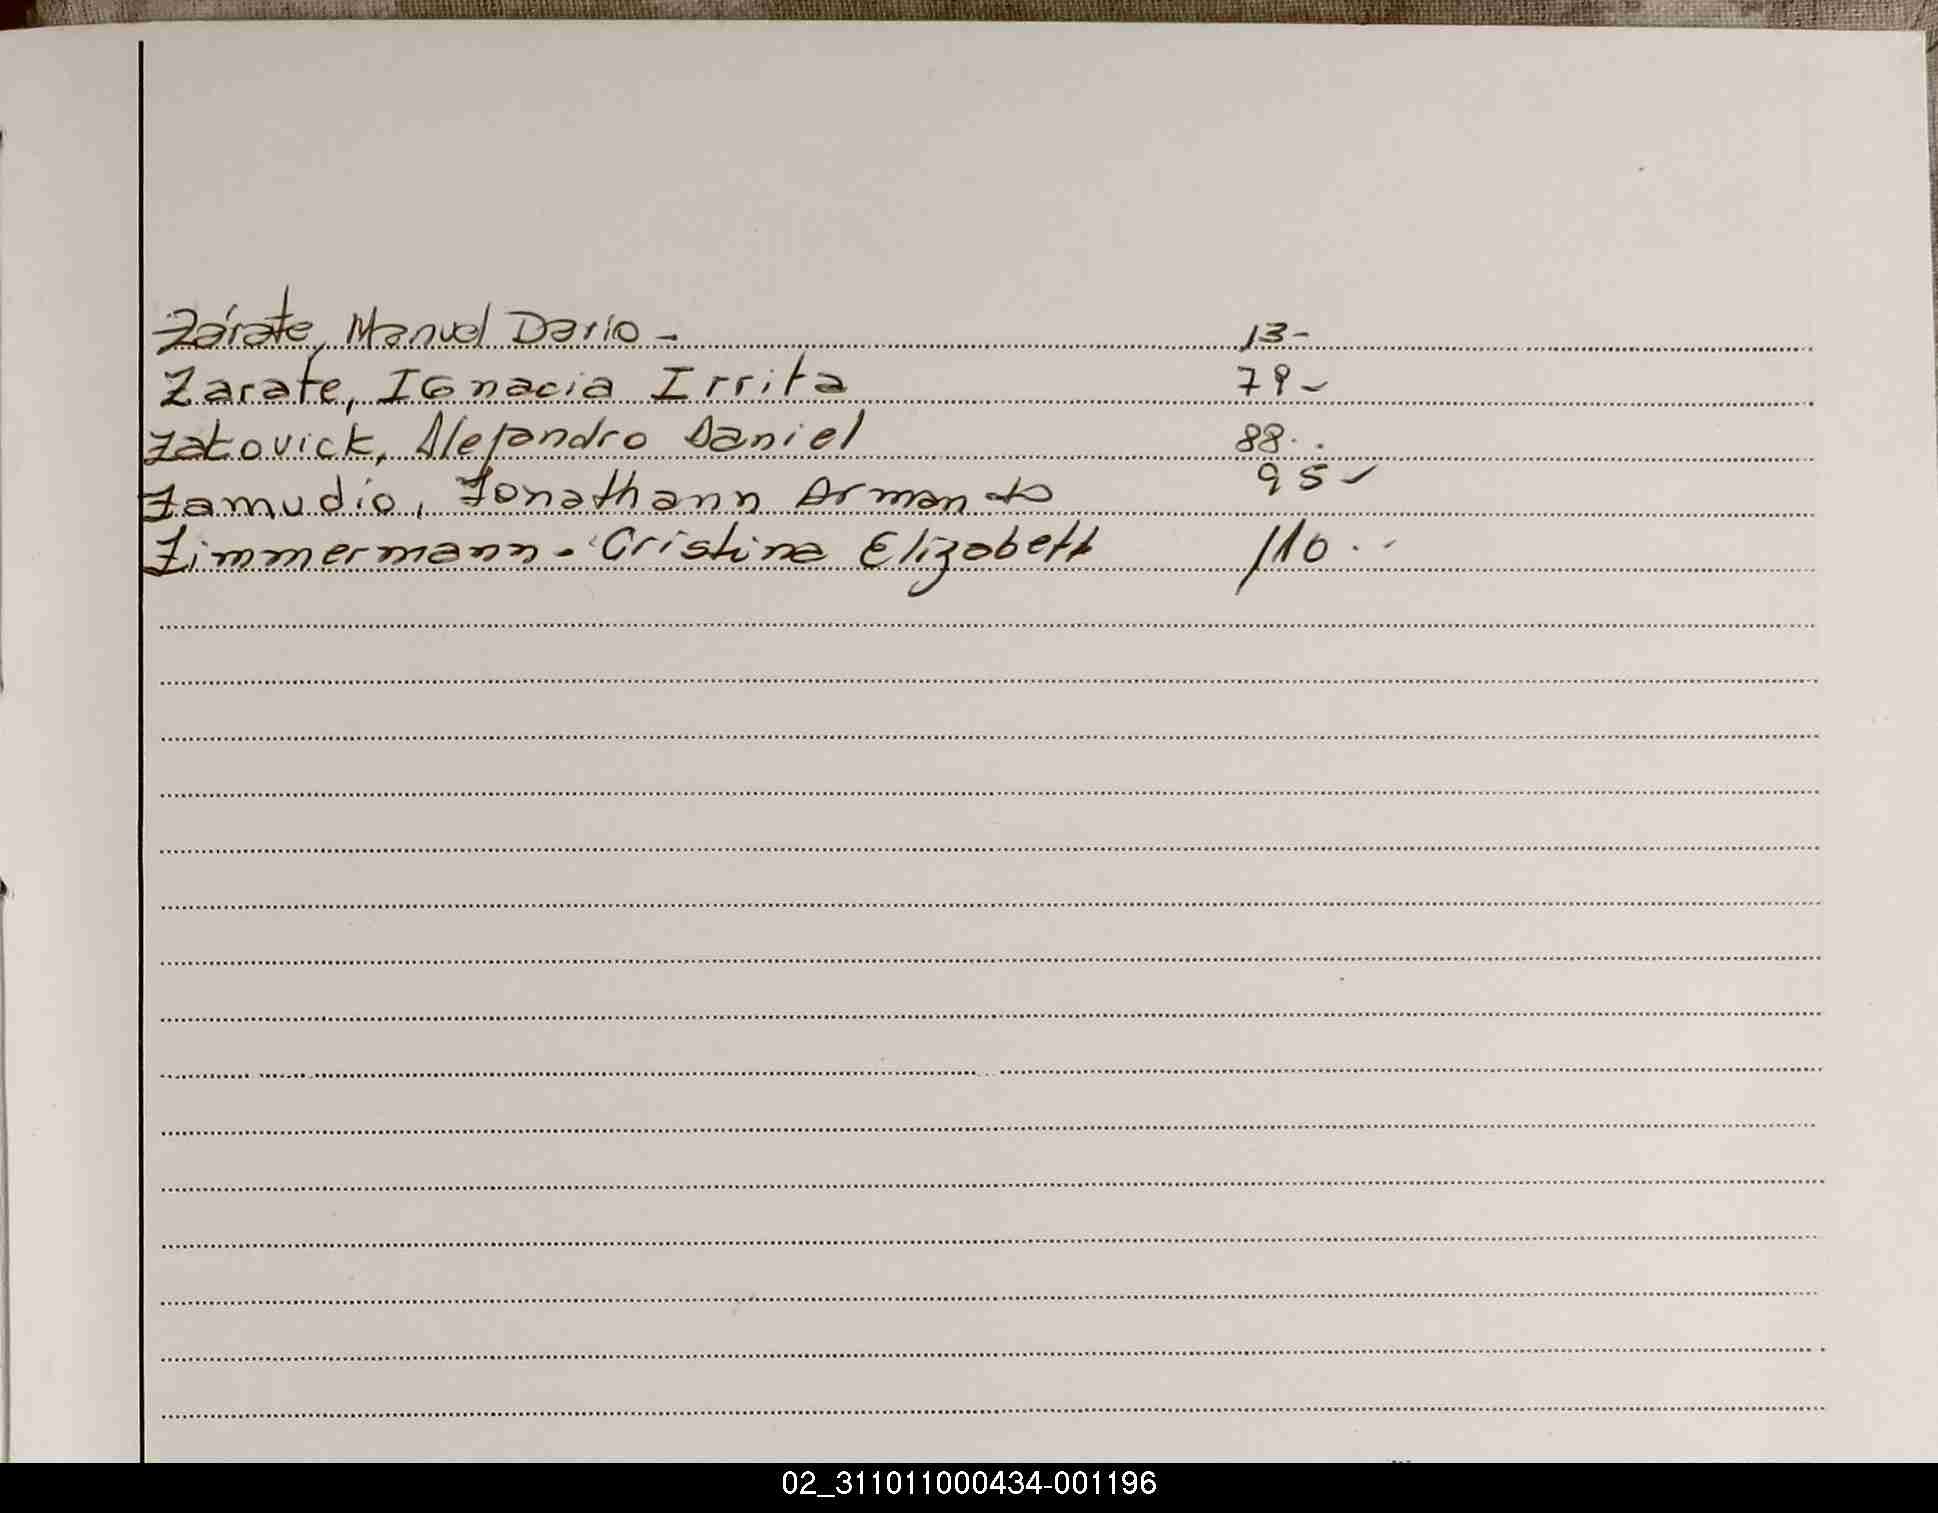 Zárate, Manuel Dario - 13-
Zarate, IGnacia Irrita 79-
Zatovick, Alejandro Daniel 88..
Zamudio, Jonathann Armando 95-
Zimmermann - Cristina Elizabett 110..
02_311011000434-001196